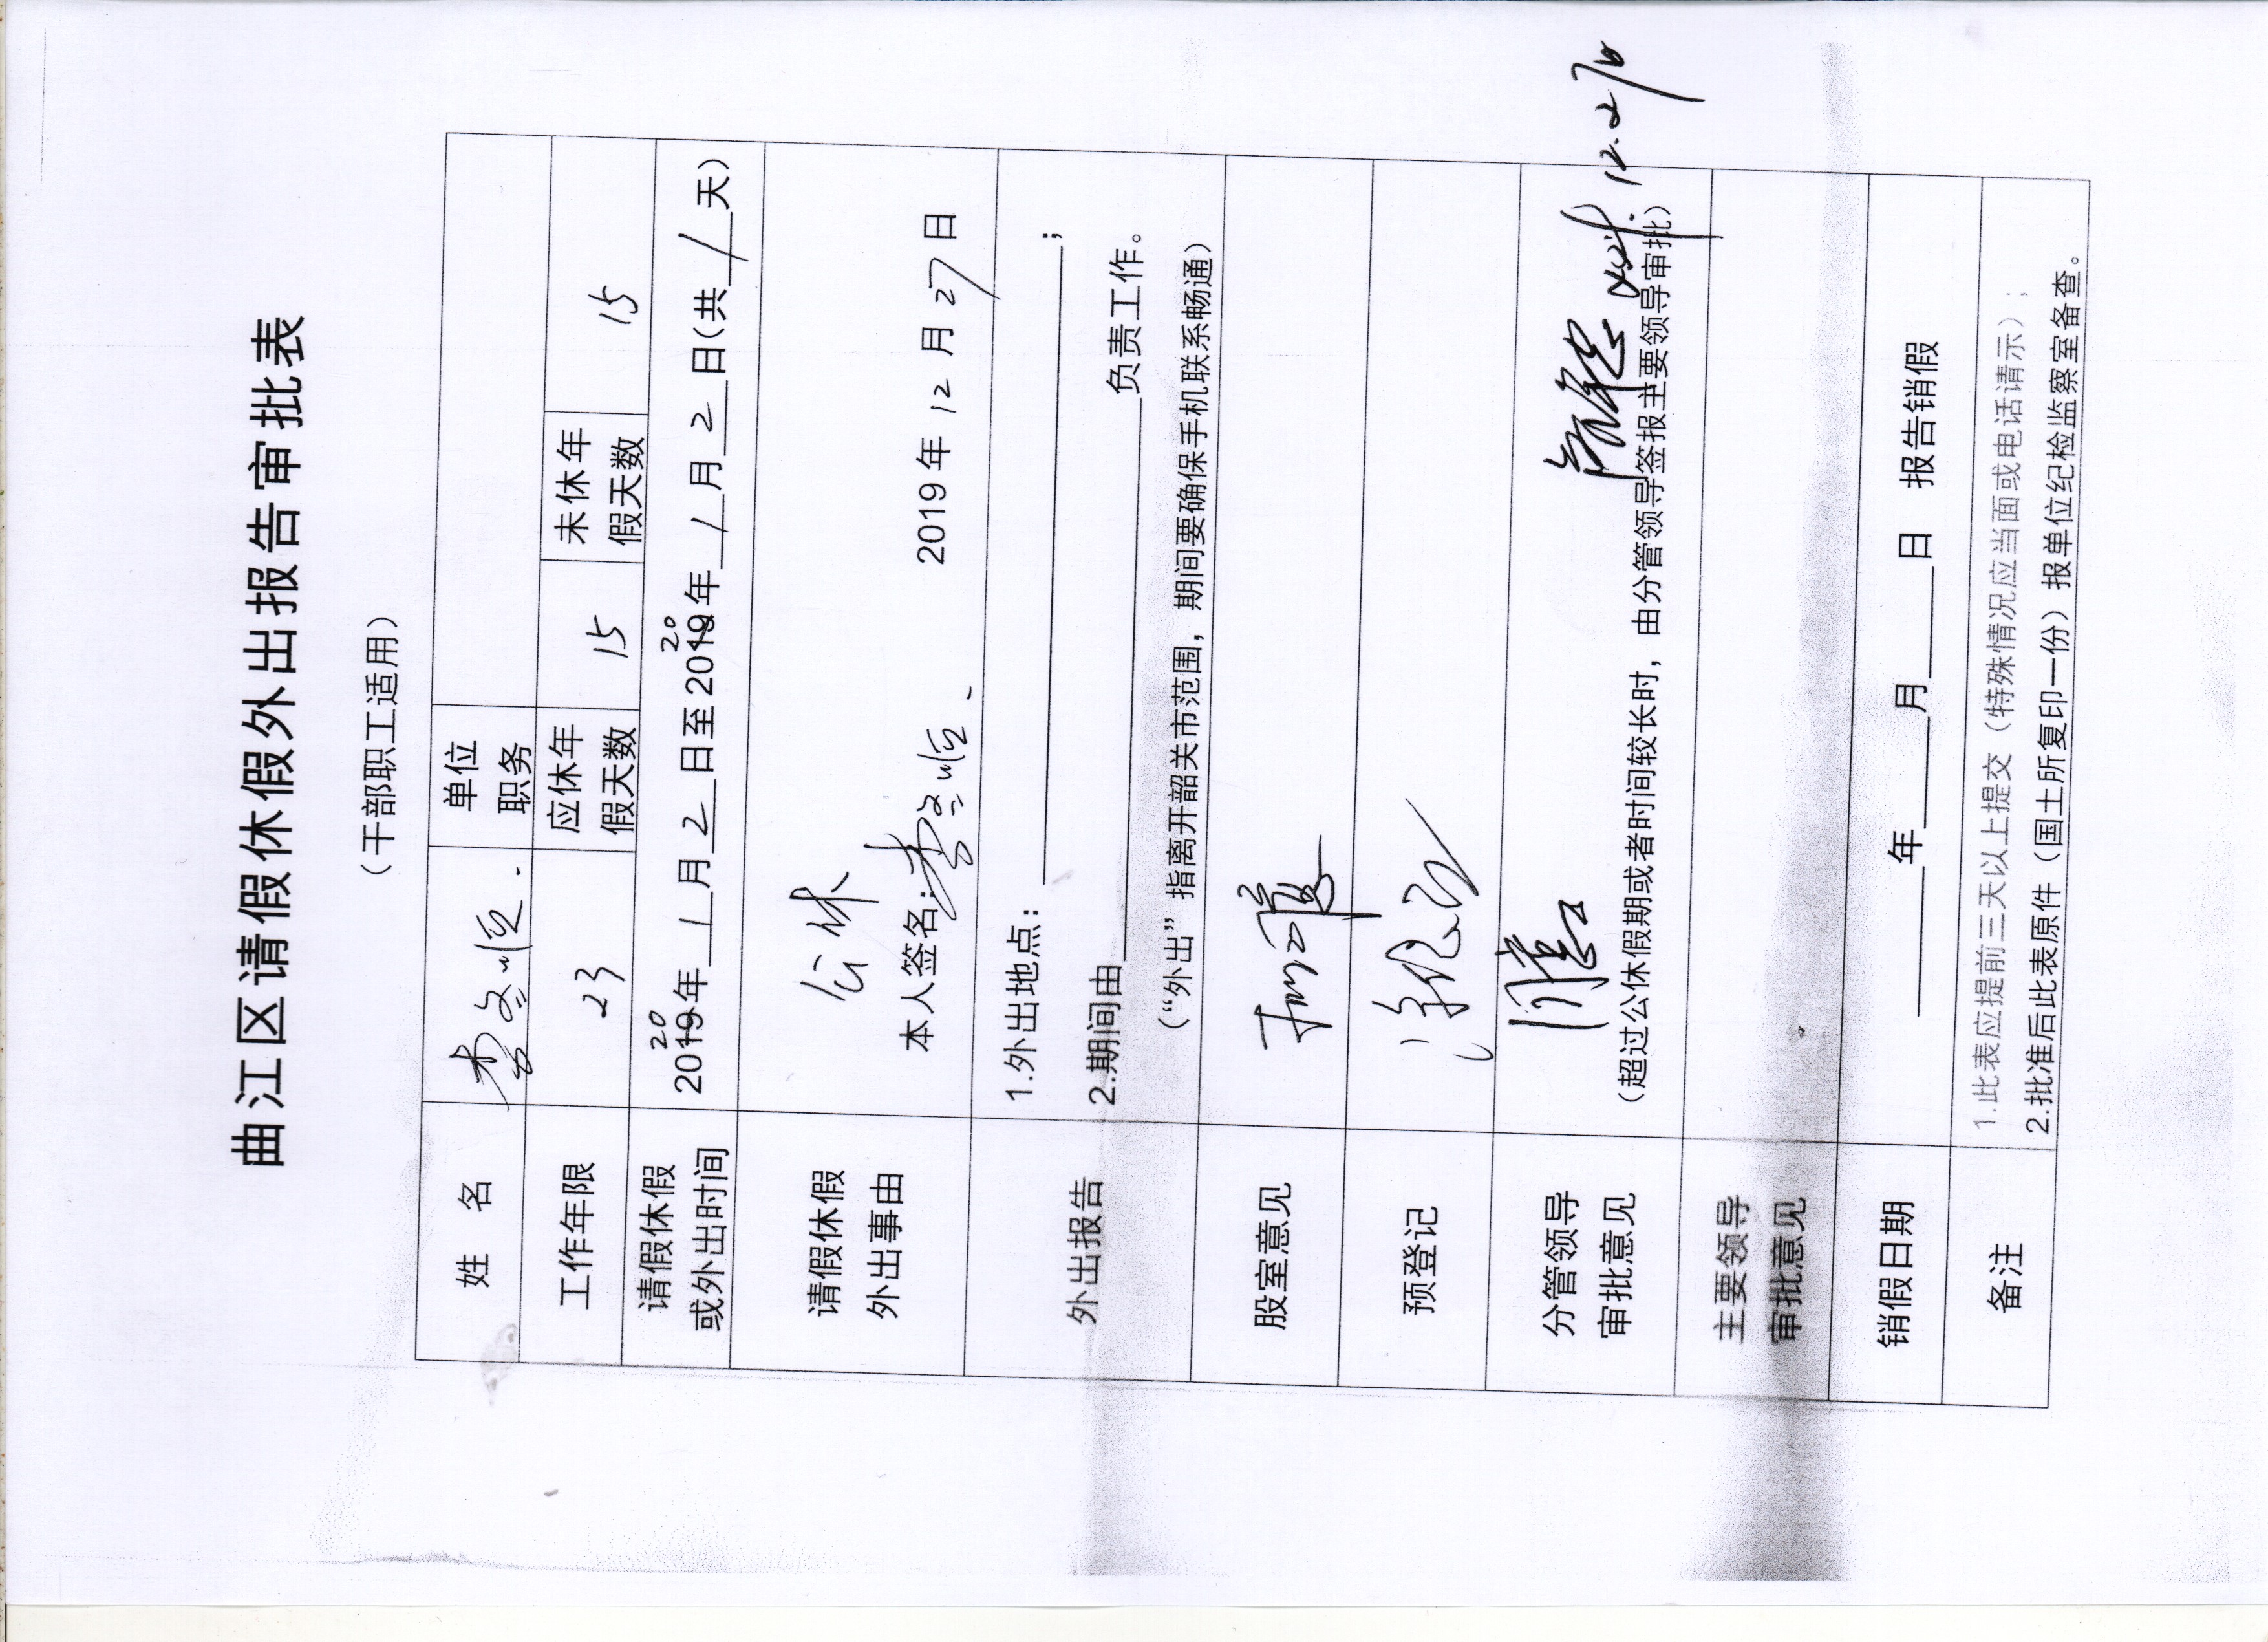 曲江区请假休假外出报告审批表
（干部职工适用）
姓 名 李冬顺 单位职务
工作年限 23 应休年假天数 15 未休年假天数 15
请假休假或外出时间 2020年1月2日至2020年1月2日(共1天)
请假休假外出事由 公休
本人签名：李冬顺 2019年12月27日
外出报告
1.外出地点：；
2.期间由 负责工作。
（“外出”指离开韶关市范围，期间要确保手机联系畅通）
股室意见
预登记
分管领导审批意见 同意 12.27
（超过公休假期或者时间较长时，由分管领导签报主要领导审批）
主要领导审批意见
销假日期 年 月 日 报告销假
备注
1.此表应提前三天以上提交（特殊情况应当面或电话请示）；
2.批准后此表原件（国土所复印一份）报单位纪检监察室备查。